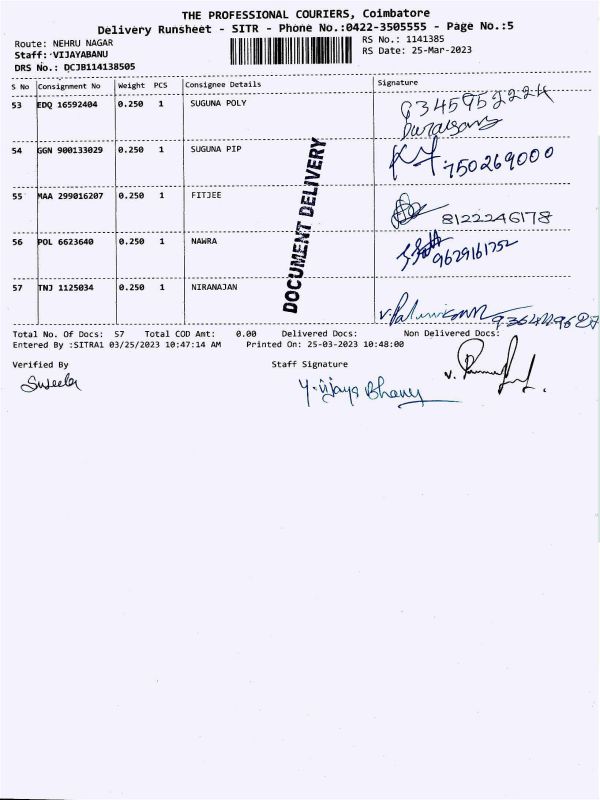 THE PROFESSIONAL COURIERS, Coimbatore
Delivery Runsheet - SITR - Phone No.:0422-3505555 - Page No.:5
Route: NEHRU NAGAR
RS No.: 1141385
Staff: VIJAYABANU
RS Date: 25-Mar-2023
DRS No.: DCJB114138505
S No Consignment No Weight PCS Consignee Details Signature
53 EDQ 16592404 0.250 1 SUGUNA POLY
54 GGN 900133029 0.250 1 SUGUNA PIP 750269000
55 MAA 299016207 0.250 1 FITJEE 8122246178
56 POL 6623640 0.250 1 NAWRA 9629161752
57 TNJ 1125034 0.250 1 NIRANAJAN
DOCUMENT DELIVERY
Total No. Of Docs: 57 Total COD Amt: 0.00 Delivered Docs: Non Delivered Docs:
Entered By :SITRA1 03/25/2023 10:47:14 AM Printed On: 25-03-2023 10:48:00
Verified By Staff Signature
Suseela Y. Vijaya Bhanu